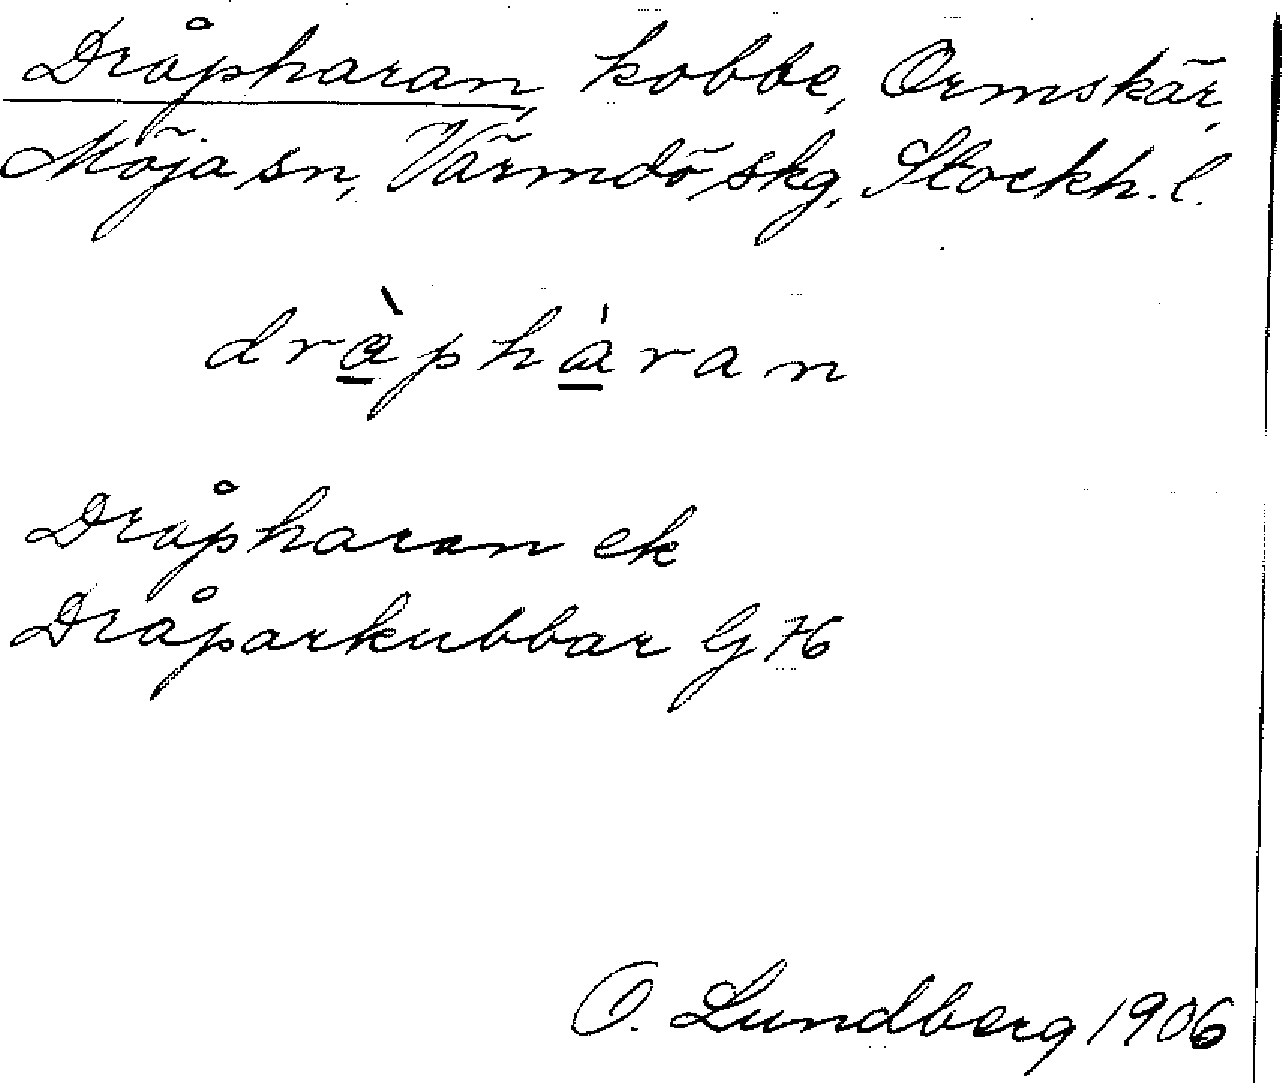 Dråpharan, kobbe, Ormskär,
Möja sn, Värmdö skg, Stockh. l.
dràpháran
Dråpharan ek
Dråparkubbar GH
O. Lundberg 1906